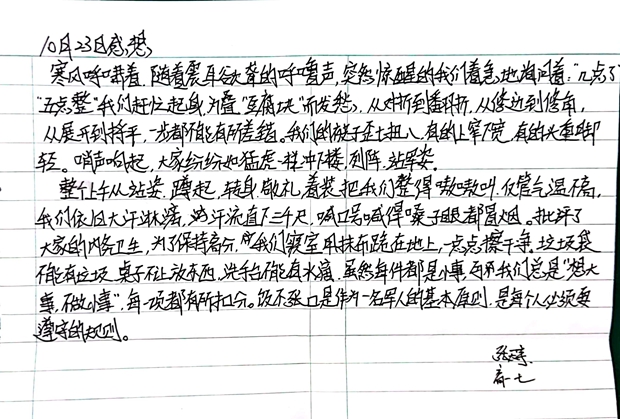 10月23日感想
寒风呼啸着,随着震耳欲聋的呼噜声,突然惊醒的我们着急地询问着:"几点了"
"五点整"我们赶忙起身,为叠"豆腐块"而发愁,从对折到翻折,从修边到修角,
从展开到捋平,一步都不能有所差错。我们的被子歪七扭八,有的上窄下宽,有的头重脚
轻。哨声响起,大家纷纷如猛虎一样冲下楼,列阵,站军姿。
整个上午从站姿,蹲起,转身,敬礼,着装,把我们整得嗷嗷叫,仅管气温不高,
我们依旧大汗淋漓,汗流直下三千尺,喊口号喊得嗓子眼都冒烟。批评了
大家的内务卫生,为了保持高分,我们寝室用抹布跪在地上,一点点擦干净,垃圾袋
不能有垃圾,桌子不让放东西,洗手台不能有水滴,虽然每件都是小事,而我们总是"想大
事,不做小事",每一项都有所扣分。饭不张口是作为一名军人的基本原则,是每个人必须要
遵守的规则。
高一七